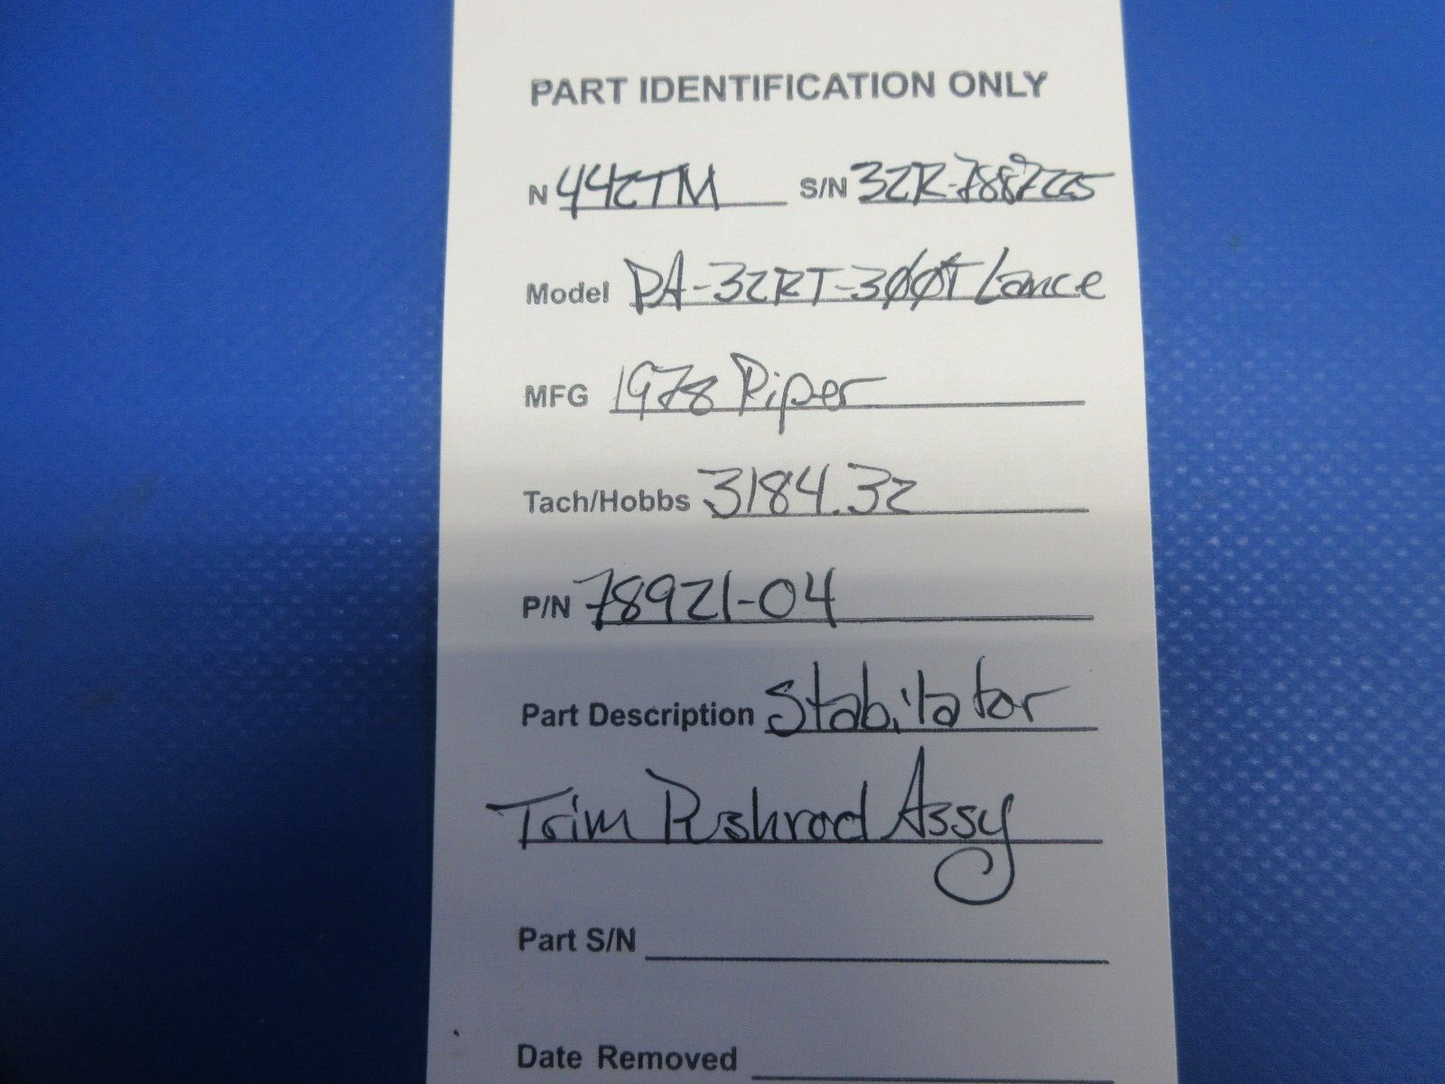 PART IDENTIFICATION ONLY
N 442TM S/N 32R-7887225
Model PA-32RT-300T Lance
MFG 1978 Piper
Tach/Hobbs 3184.32
P/N 78921-04
Part Description Stabilator
Trim Pushrod Assy
Part S/N
Date Removed